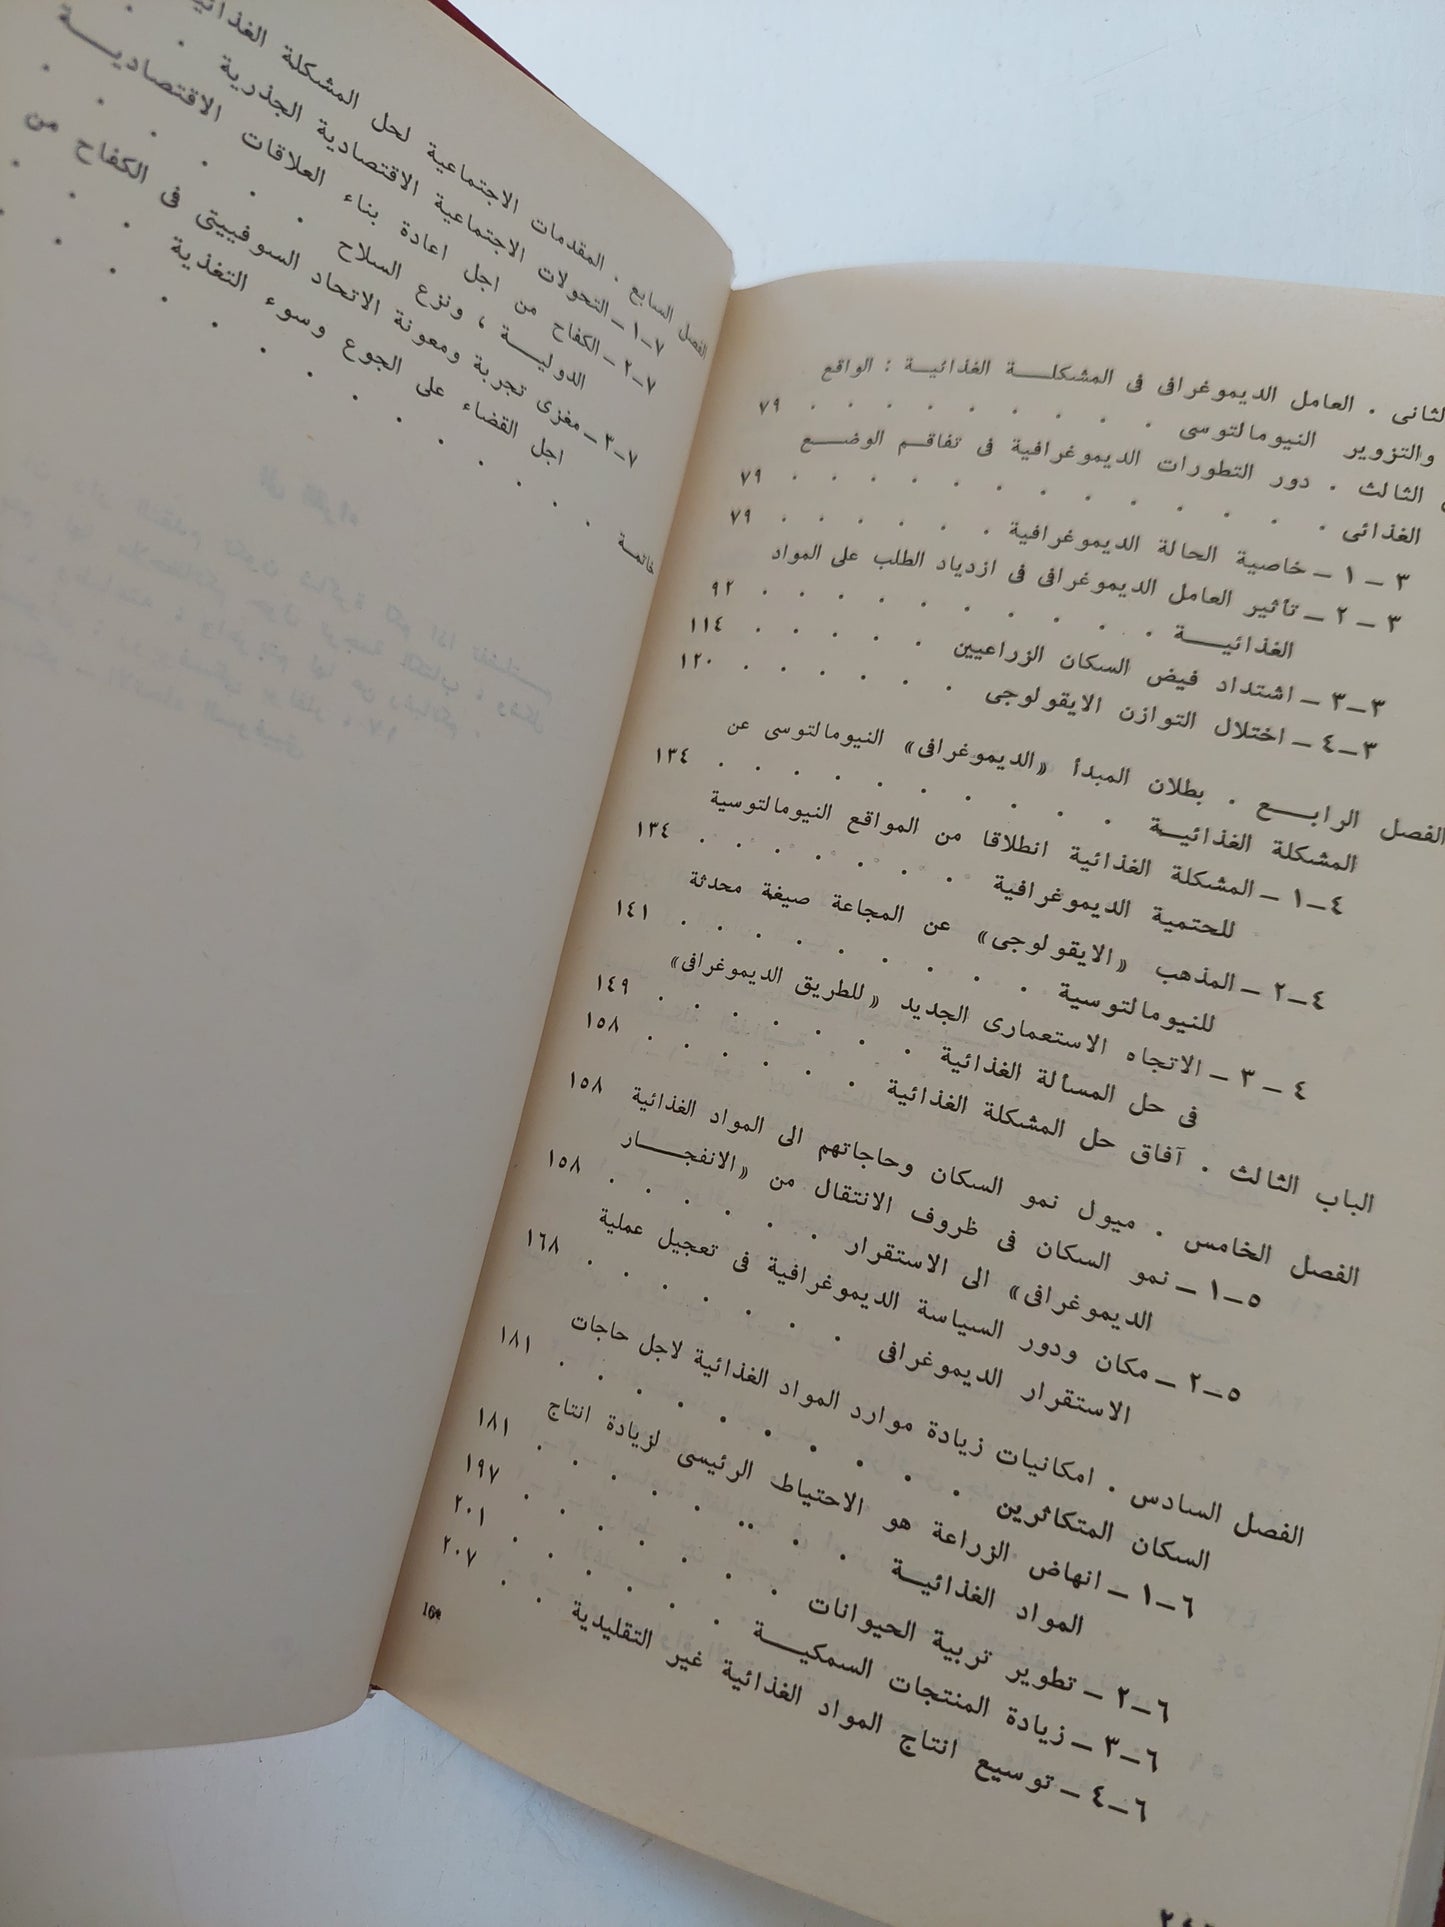 الثانى . العامل الديموغرافى فى المشكلــة الغذائيـة : الواقع
والتزوير النيومالتوسى . . . . . . . . ٧٩
الثالث . دور التطورات الديموغرافية فى تفاقـم الوضـع
الغذائى . . . . . . . . . . . ٧٩
٣ – ١ – خاصية الحالة الديموغرافية . . . . . . ٧٩
٣ – ٢ – تأثير العامل الديموغرافى فى ازدياد الطلب على المواد
الغذائيــة . . . . . . . . . . ٩٢
٣–٣ – اشتداد فيض السكان الزراعيين . . . . . ١١٤
٣–٤ – اختلال التوازن الايقولوجى . . . . . . ١٢٠
الفصل الرابـع . بطلان المبدأ «الديموغرافى» النيومالتوسى عن
المشكلة الغذائيـة . . . . . . . . . ١٣٤
٤–١ – المشكلة الغذائية انطلاقا من المواقع النيومالتوسية
للحتمية الديموغرافية . . . . . . . ١٣٤
٤–٢ – المذهب «الايقولوجى» عن المجاعة صيغة محدثة
للنيومالتوسية . . . . . . . . . ١٤١
٤ – ٣ – الاتجاه الاستعمارى الجديد «للطريق الديموغرافى»
فى حل المسألة الغذائية . . . . . . . ١٤٩
الباب الثالث . آفاق حل المشكلة الغذائية . . . . . . ١٥٨
الفصل الخامس . ميول نمو السكان وحاجاتهم الى المواد الغذائية ١٥٨
٥–١ – نمو السكان فى ظروف الانتقال من «الانفجــار
الديموغرافى» الى الاستقرار . . . . . . ١٥٨
٥–٢ – مكان ودور السياسة الديموغرافية فى تعجيل عملية
الاستقرار الديموغرافى . . . . . . . ١٦٨
الفصل السادس . امكانيات زيادة موارد المواد الغذائية لاجل حاجات
السكان المتكاثرين . . . . . . . . . . ١٨١
٦–١ – انهاض الزراعة هو الاحتياط الرئيسى لزيادة انتاج
المواد الغذائيـة . . . . . . . . . ١٨١
٦–٢ – تطوير تربية الحيوانات . . . . . . . ١٩٧
٦–٣ – زيادة المنتجات السمكيـة . . . . . . . ٢٠١
٦–٤ – توسيع انتاج المواد الغذائية غير التقليدية . . ٢٠٧
16*
الفصل السابع . المقدمات الاجتماعية لحل المشكلة
٧–١ – التحولات الاجتماعية الاقتصادية الجذرية . .
٧–٢ – الكفاح من اجل اعادة بناء العلاقات الاقتصاديــة
الدوليــة ، ونزع السلاح . . . . . .
٧–٣ – مغزى تجربة ومعونة الاتحاد السوفييتى فى الكفاح من
اجل القضاء على الجوع وسوء التغذية . . . .
خاتمـة . . . . . . . . . . . . .